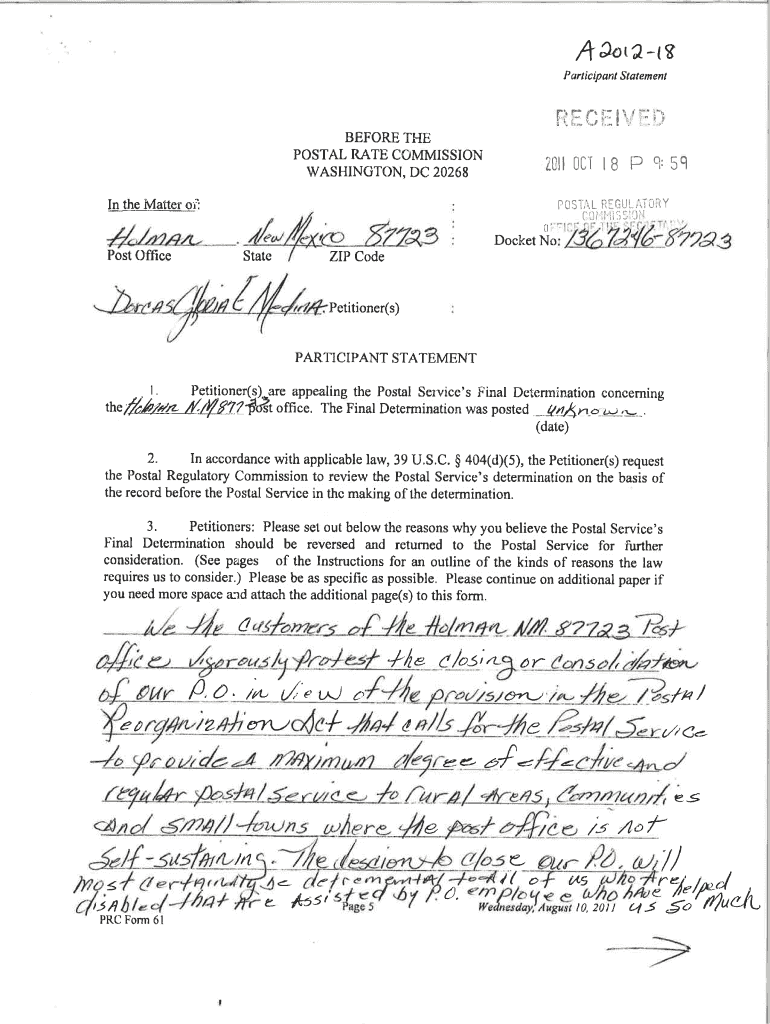 A2012-18
Participant Statement
RECEIVED
2011 OCT 18 P 9:59
POSTAL REGULATORY
COMMISSION
OFFICE OF THE SECRETARY
BEFORE THE
POSTAL RATE COMMISSION
WASHINGTON, DC 20268
In the Matter of: :
Holman, New Mexico 87723 : Docket No: 1367246-87723
Post Office State ZIP Code
Dorcas Gloria E Medina, Petitioner(s) :
PARTICIPANT STATEMENT
1. Petitioner(s) are appealing the Postal Service's Final Determination concerning
the Holman N.M 87723 post office. The Final Determination was posted unknown.
(date)
2. In accordance with applicable law, 39 U.S.C. § 404(d)(5), the Petitioner(s) request
the Postal Regulatory Commission to review the Postal Service's determination on the basis of
the record before the Postal Service in the making of the determination.
3. Petitioners: Please set out below the reasons why you believe the Postal Service's
Final Determination should be reversed and returned to the Postal Service for further
consideration. (See pages of the Instructions for an outline of the kinds of reasons the law
requires us to consider.) Please be as specific as possible. Please continue on additional paper if
you need more space and attach the additional page(s) to this form.
We the customers of the Holman NM. 87723 Post
office vigorously protest the closing or consolidation
of our P.O. in view of the provision in the Postal
Reorganization Act that calls for the Postal Service
to provide a maximum degree of effective and
regular postal service to rural areas, communities
and small towns where the post office is not
self-sustaining. The descion to close our P.O. will
most certainity be detremental to all of us who are
disabled that are assisted by P.O. employee who have helped
us so much
Page 5 Wednesday, August 10, 2011
PRC Form 61